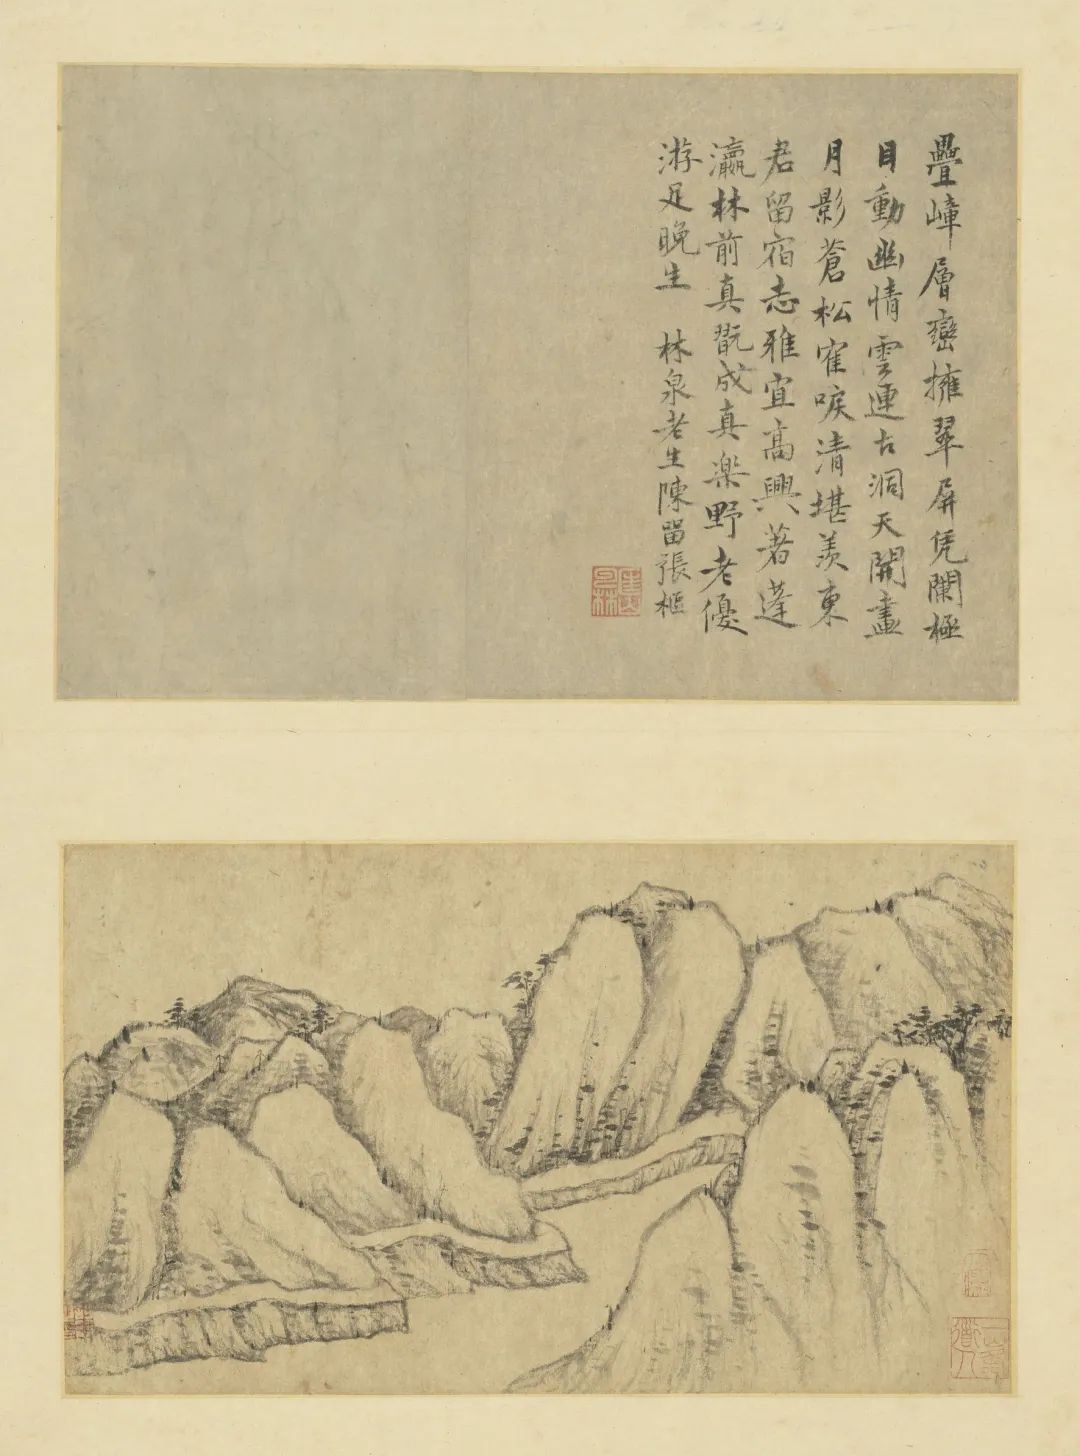 疊嶂層巒擁翠屏凭闌極
目動幽情雲連古洞天開畫
月影蒼松隺唳清堪羡東
君留宿志雅宜高興著蓬
瀛林前真翫成真楽野老優
游足晚生 林泉老生陳留張樞